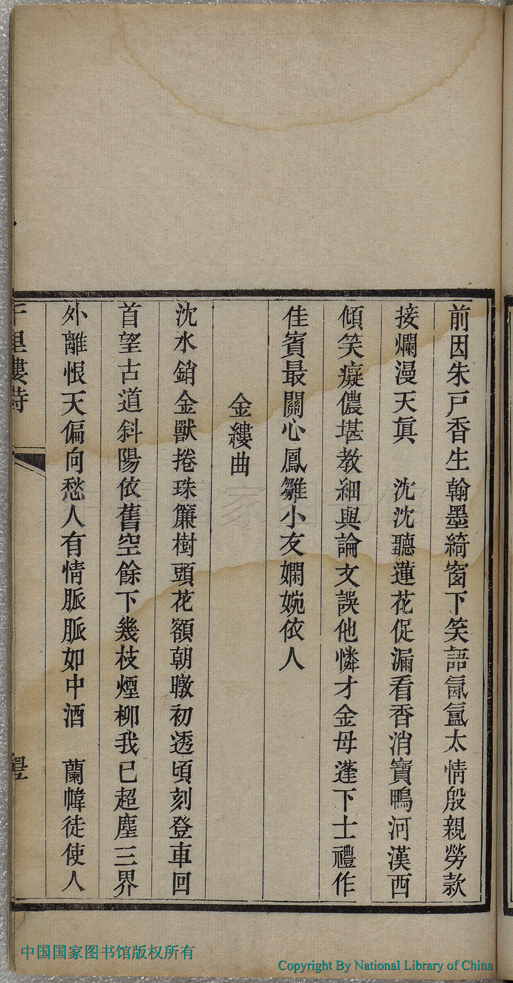 前因朱戸香生翰墨綺窗下笑語氤氳太情殷親勞款
接爛漫天眞　沈沈聽蓮花促漏看香消寶鴨河漢西
傾笑癡儂堪教細與論文誤他憐才金母逢下士禮作
佳賓最關心鳳雛小友嫻婉依人
金縷曲
沈水銷金獸捲珠簾樹頭花額朝暾初透頃刻登車回
首望古道斜陽依舊空餘下幾枝煙柳我已超塵三界
外離恨天偏向愁人有情脈脈如中酒　蘭幃徒使人
中国国家图书馆版权所有
Copyright By National Library of China